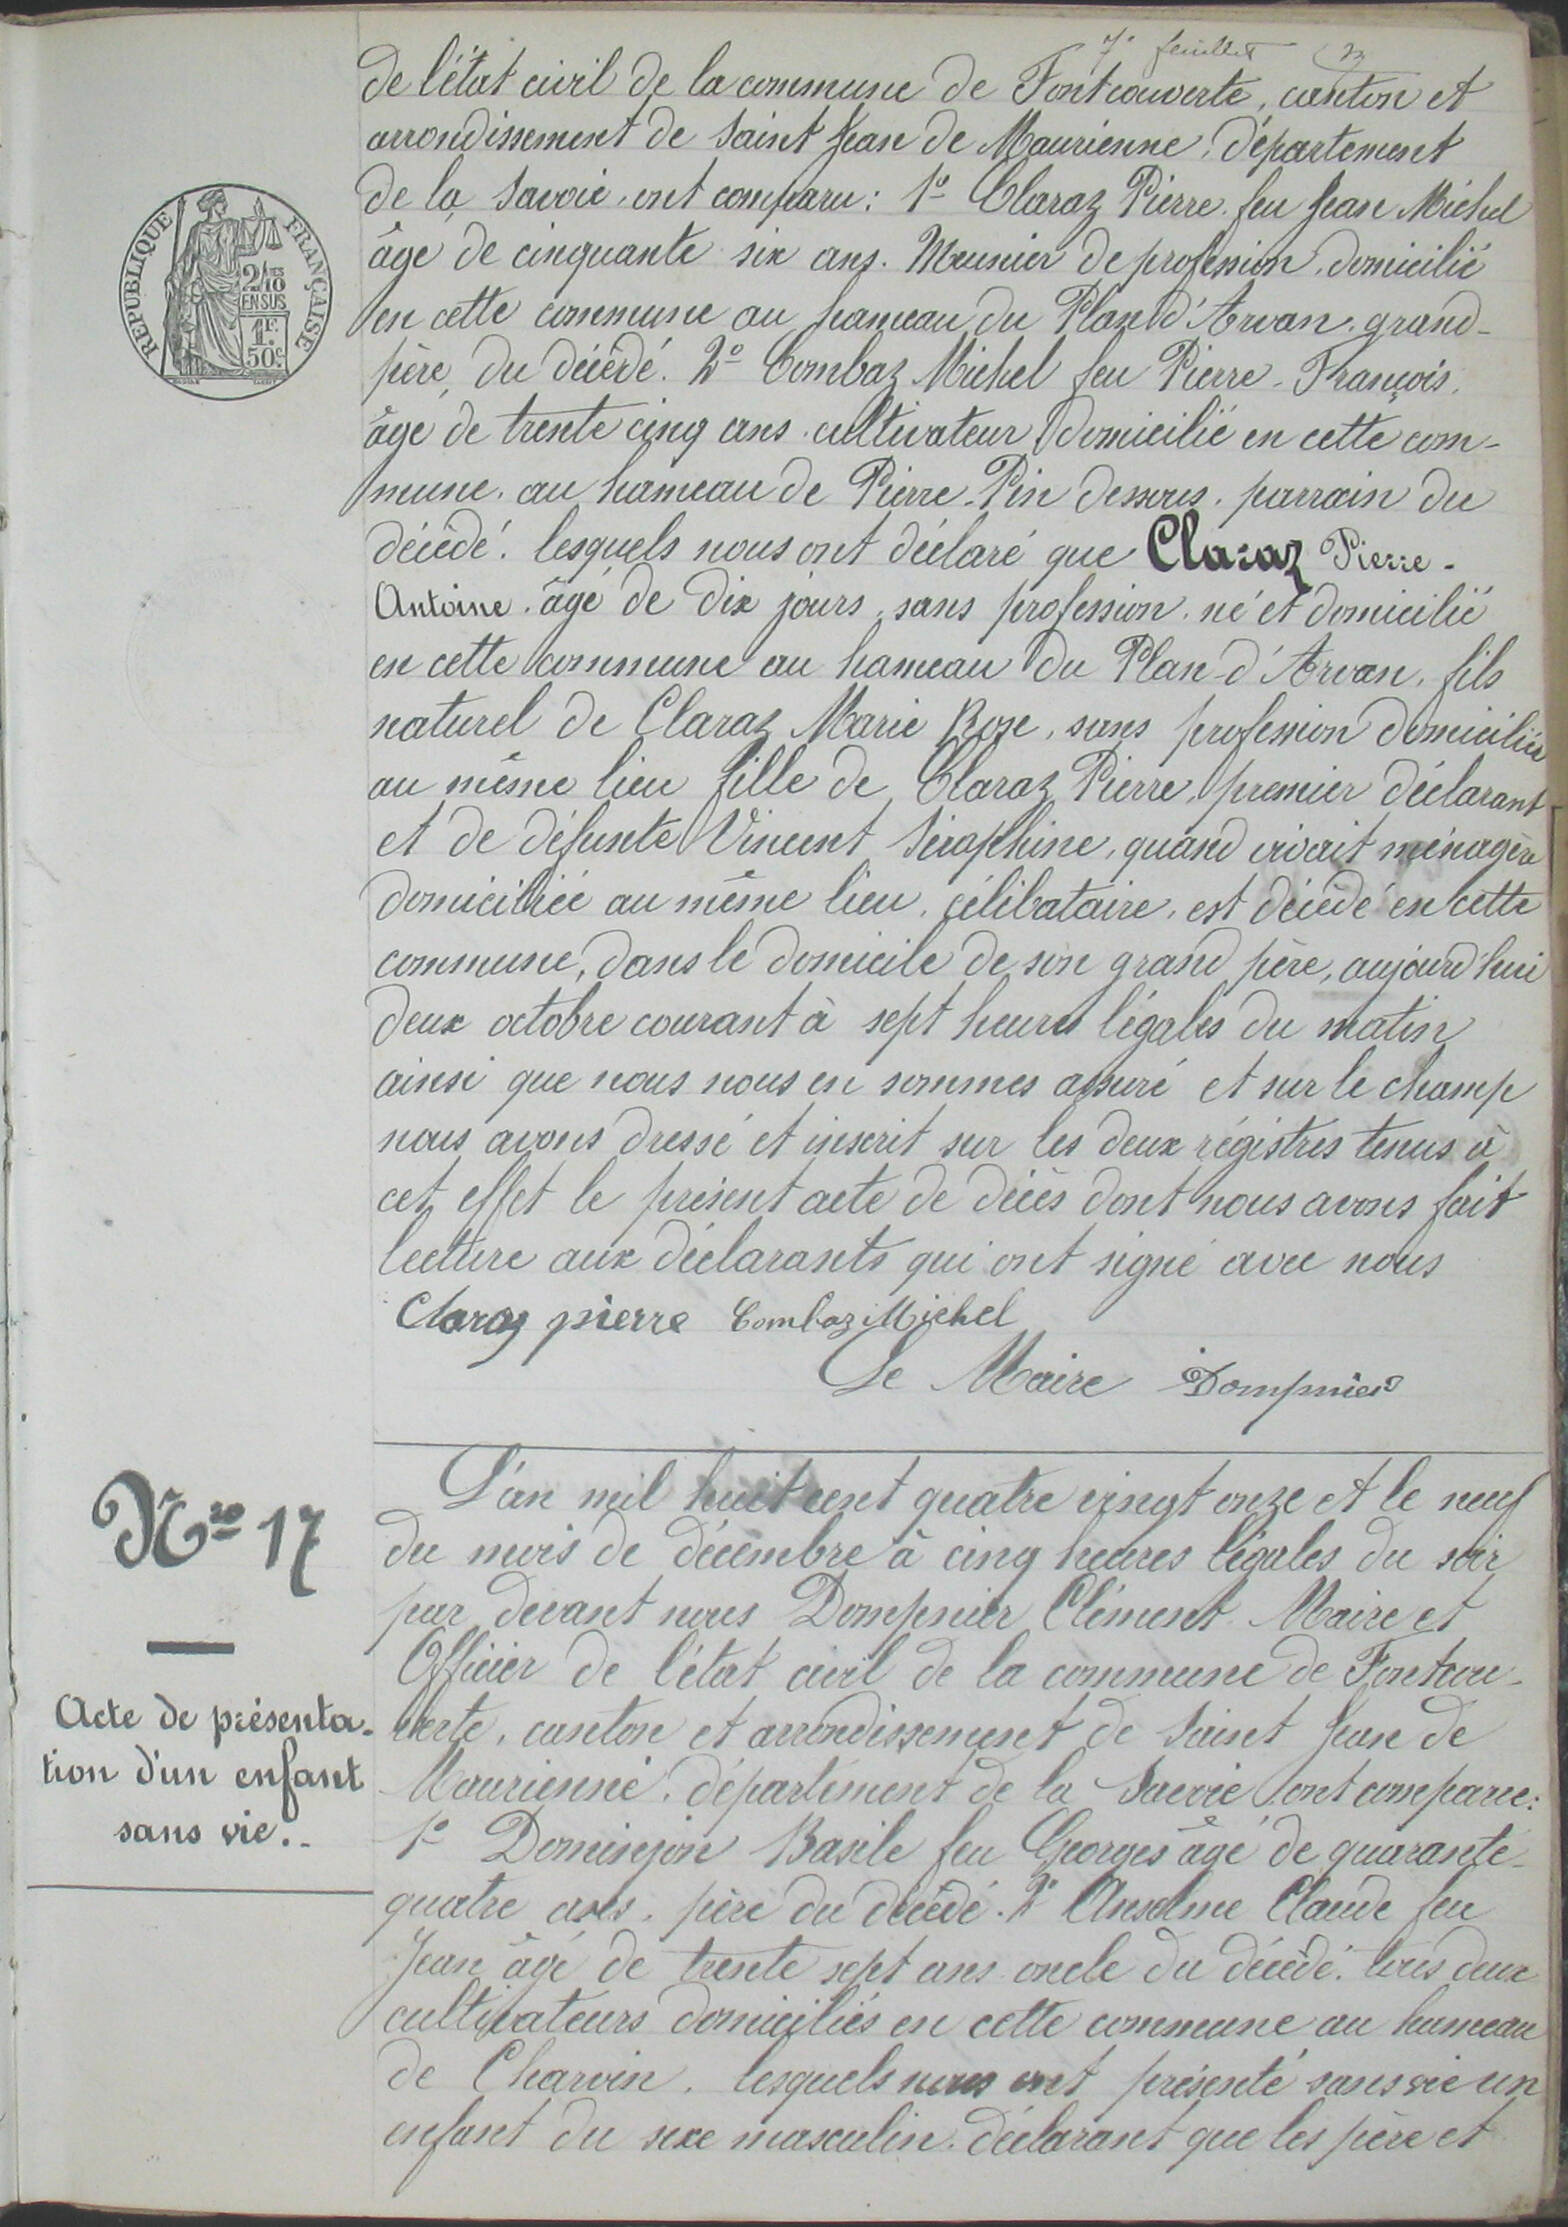 7e feuillet
de l'état civil de la commune de Fontcouverte, canton et
arrondissement de Saint Jean de Maurienne, département
de la Savoie, ont comparu : 1o Claraz Pierre feu Jean Michel
âgé de cinquante six ans. Meunier de profession, domicilié
en cette commune au hameau du Plan d'Arvan, grand-
père du décédé. 2o Combaz Michel feu Pierre-François,
âgé de trente cinq ans, cultivateur domicilié en cette com-
mune, au hameau de Pierre-Pin dessous, parrain du
décédé. lesquels nous ont déclaré que Claraz Pierre-
Antoine, âgé de dix jours, sans profession, né et domicilié
en cette commune au hameau du Plan-d'Arvan, fils
naturel de Claraz Marie Rose, sans profession domiciliée
au même lieu fille de Claraz Pierre, premier déclarant
et de défunte Vincent Séraphine, quand vivait ménagère
domiciliée au même lieu, célibataire, est décédé en cette
commune, dans le domicile de son grand père, aujourd'hui
deux octobre courant à sept heures légales du matin
ainsi que nous nous en sommes assuré et sur le champ
nous avons dressé et inscrit sur les deux régistres tenus à
cet effet le présent acte de décès dont nous avons fait
lecture aux déclarants qui ont signé avec nous
Claraz pierre Combaz Michel
Le Maire Dompnier
REPUBLIQUE FRANÇAISE
2/10es
EN SUS
1F.
50c.
Nro 17
Acte de présenta-
tion d'un enfant
sans vie.-
L'an mil huit cent quatre vingt onze et le neuf
du mois de décembre à cinq heures légales du soir
par devant nous Dompnier Clément Maire et
Officier de l'état civil de la commune de Fontcou-
verte, canton et arrondissement de Saint Jean de
Maurienne, département de la Savoie ont comparu :
1o Dominjon Basile feu Georges âgé de quarante-
quatre ans, père du décédé. 2o Anselme Claude feu
Jean âgé de trente sept ans oncle du décédé. tous deux
cultivateurs domiciliés en cette commune au hameau
de Charvin. lesquels nous ont présenté sans vie un
enfant du sexe masculin, déclarant que les père et